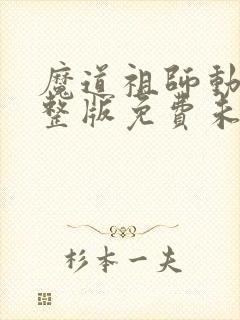 魔道祖師動
整版免費未
杉本一夫